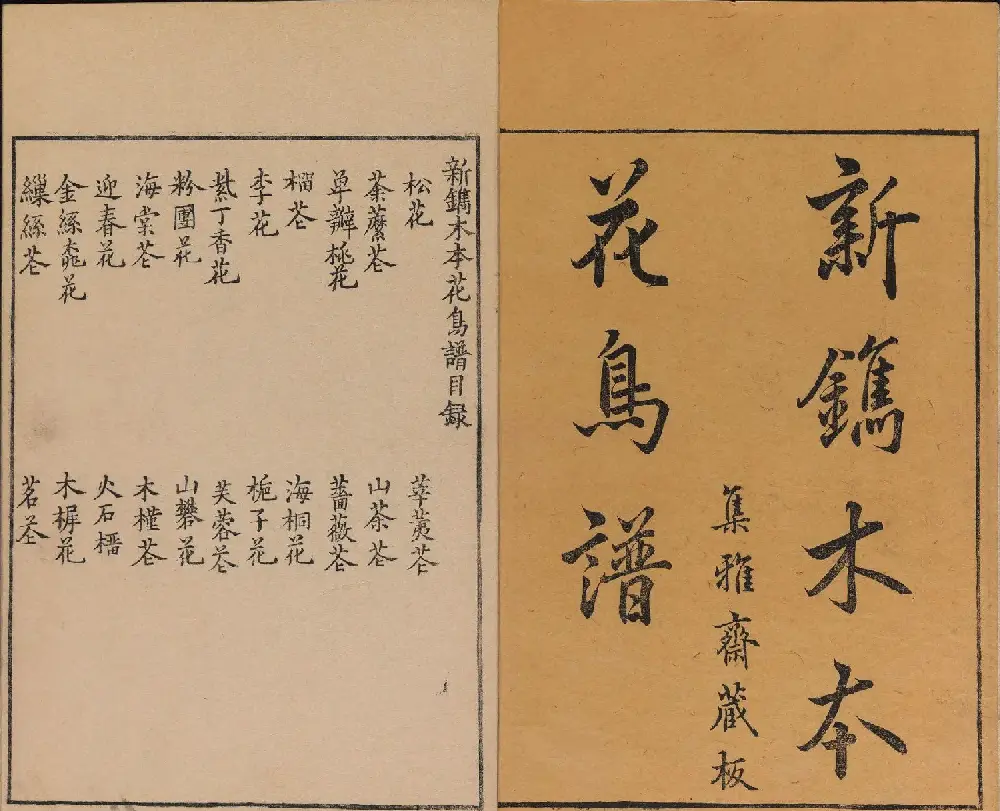 新鐫木本
花鳥譜
集雅齋藏板
新鐫木本花鳥譜目録
松花
辛荑花
荼蘼花
山茶花
单瓣桃花
薔薇花
榴花
海桐花
李花
栀子花
紫丁香花
芙蓉花
粉團花
山礬花
海棠花
木槿花
迎春花
火石榴
金絲桃花
木樨花
繅絲花
茗花